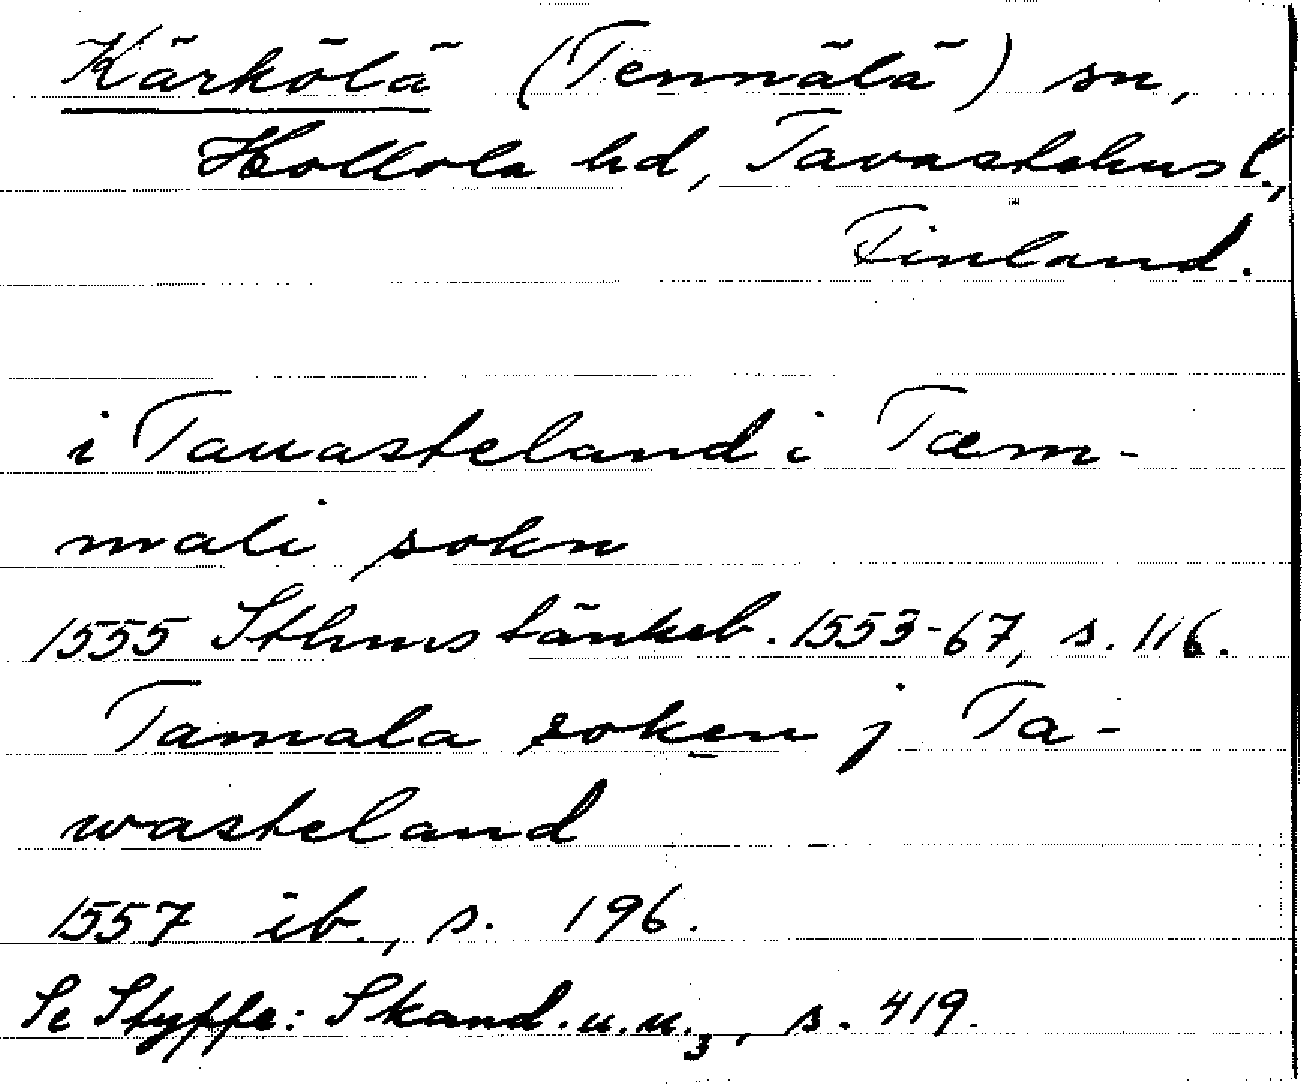 Kärkölä (Tennälä) sn,
Hollola hd, Tavastehus l.,
Finland.
i Tauasteland i Tæm-
mali sokn
1555 Sthms tänkeb. 1553-67, s. 116.
Tamala soken j Ta-
wasteland
1557 ib., s. 196.
Se Styffe: Skand. u. u.3, s. 419.